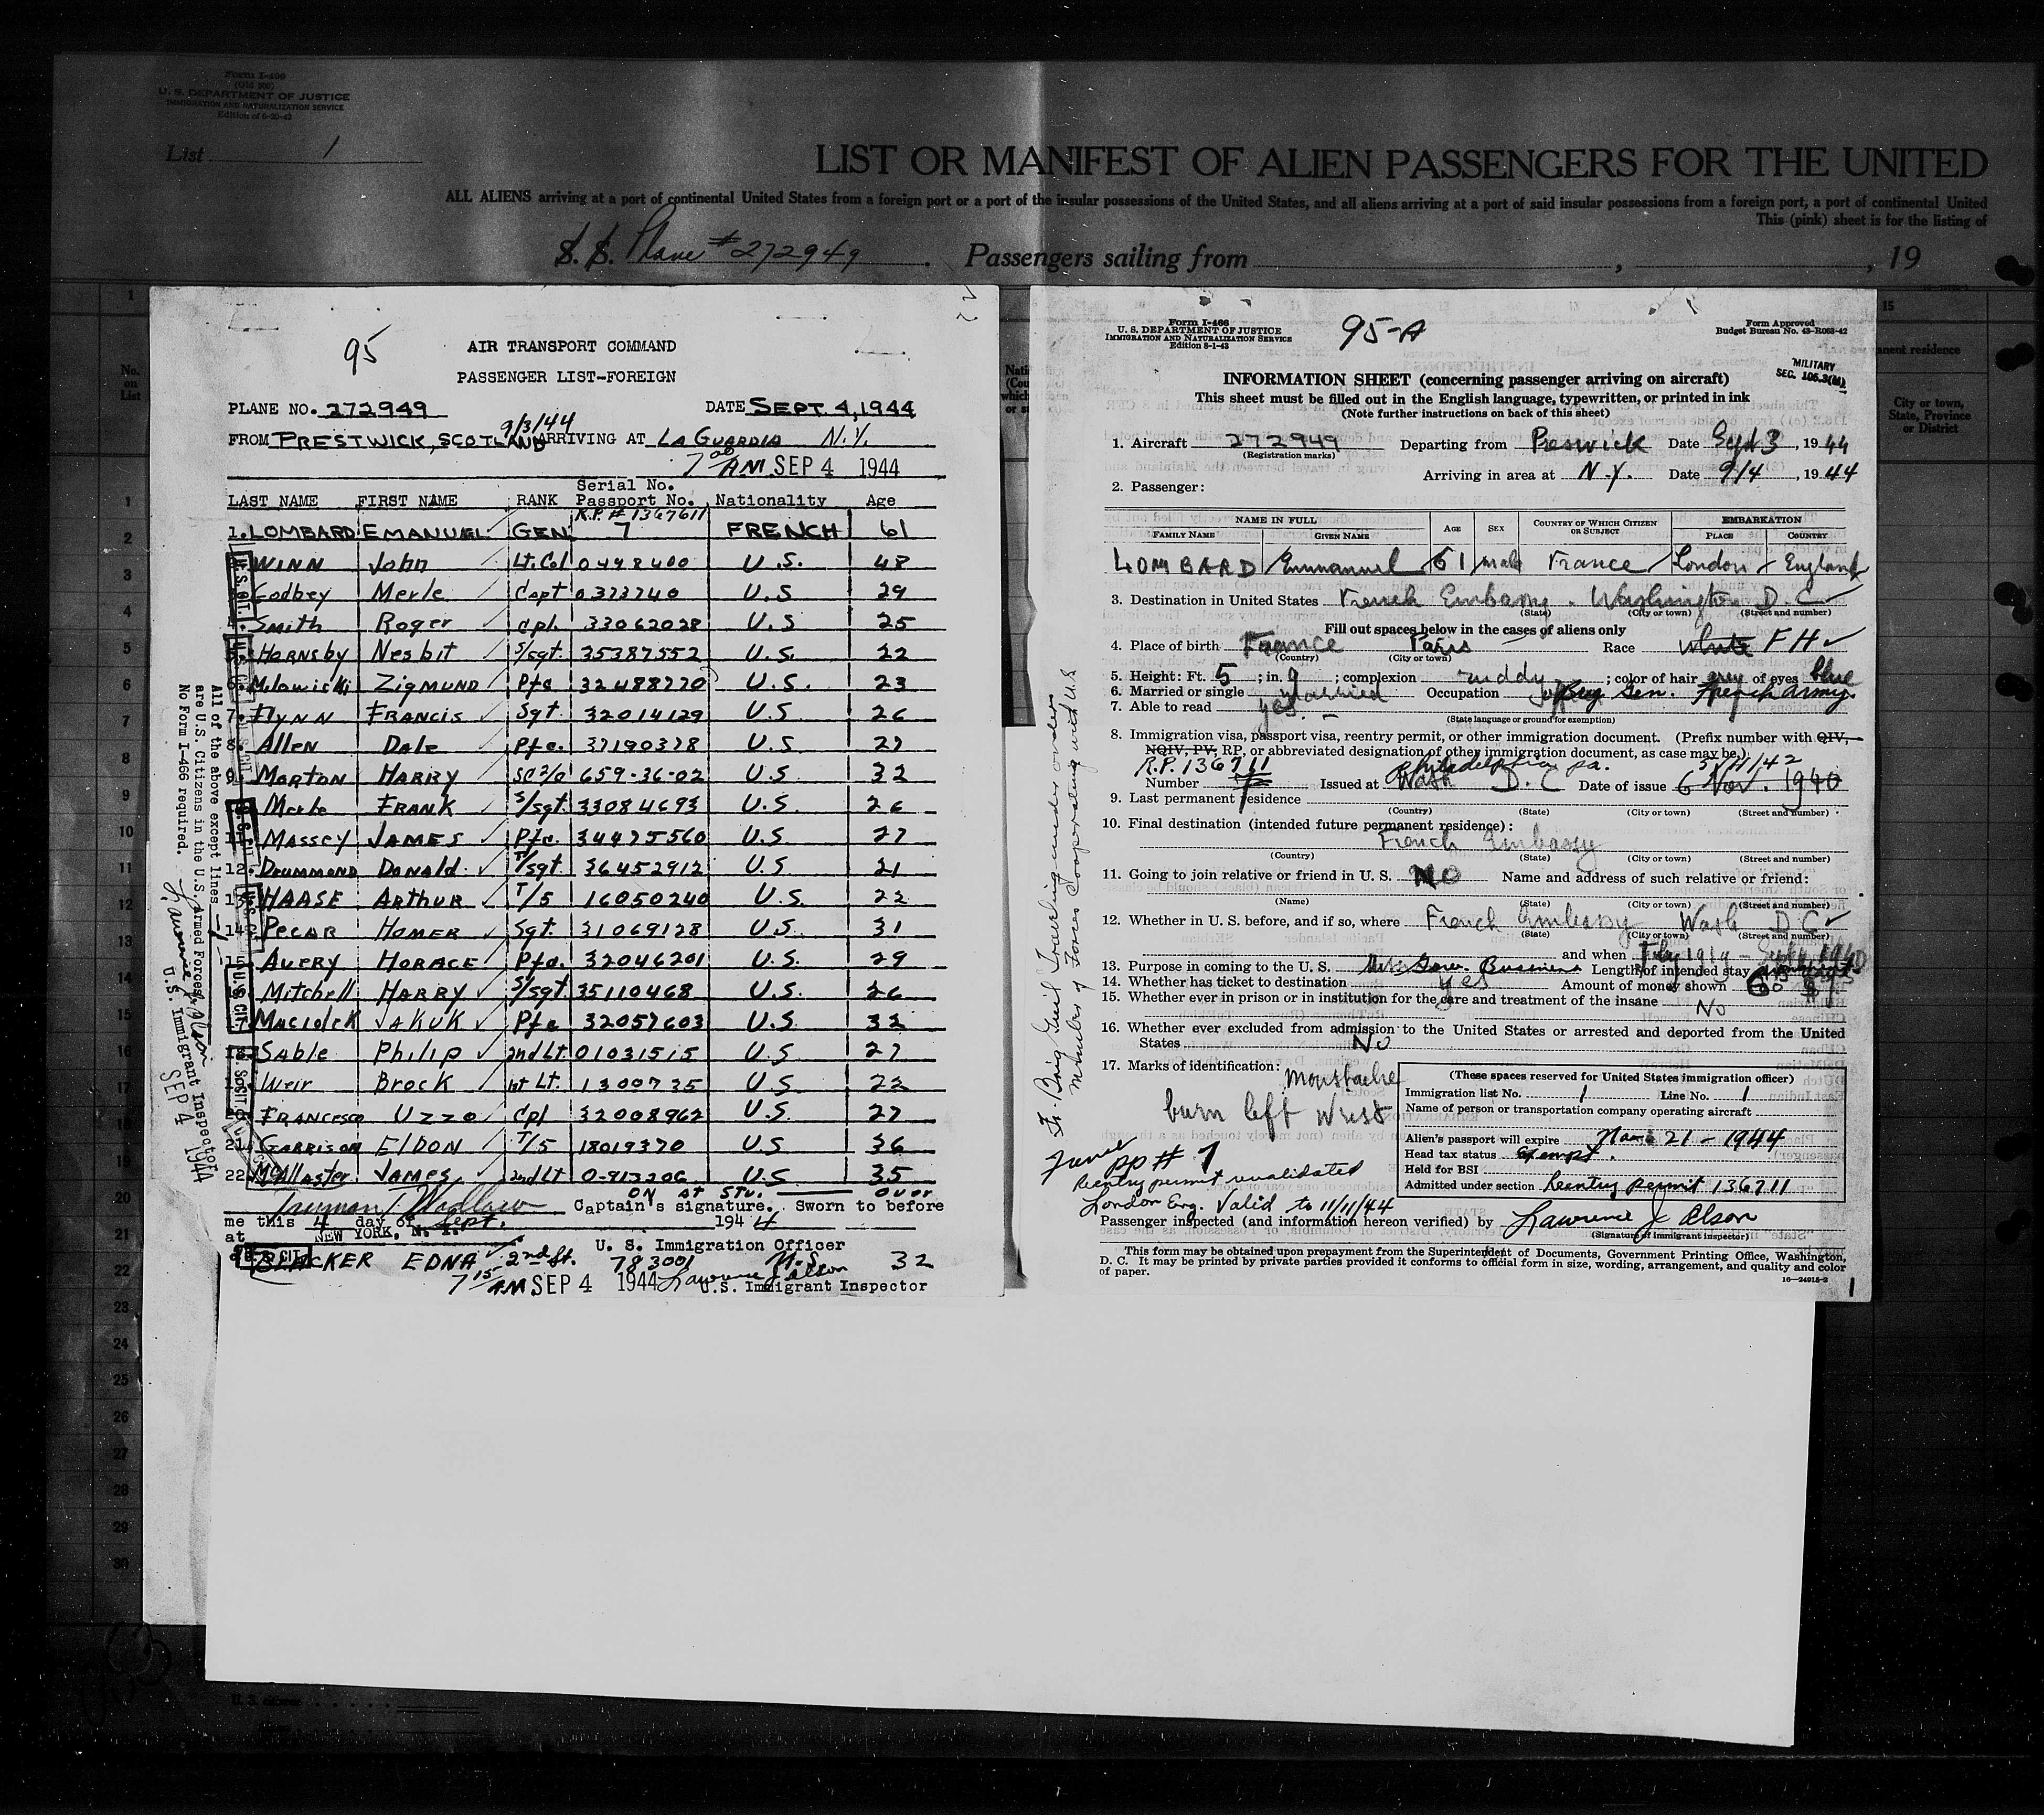 Form I-466
(Old 500)
U. S. DEPARTMENT OF JUSTICE
IMMIGRATION AND NATURALIZATION SERVICE
Edition of 6-20-42
List 1
LIST OR MANIFEST OF ALIEN PASSENGERS FOR THE UNITED
ALL ALIENS arriving at a port of continental United States from a foreign port or a port of the insular possessions of the United States, and all aliens arriving at a port of said insular possessions from a foreign port, a port of continental United
This (pink) sheet is for the listing of
S. S. Plane #272949. Passengers sailing from , , 19
95
AIR TRANSPORT COMMAND
PASSENGER LIST-FOREIGN
PLANE NO. 272949 DATE SEPT 4, 1944
9/3/44
FROM PRESTWICK, SCOTLAND ARRIVING AT LA GUARDIA N.Y.
7 00 AM SEP 4 1944
LAST NAME FIRST NAME RANK Serial No. Passport No. Nationality Age
R.P. # 1367611
1. LOMBARD EMANUEL GEN. 7 FRENCH 61
WINN John Lt. Col 0448400 U.S. 48
Godbey Merle Capt 0373740 U.S 29
Smith Roger Cpl. 33062028 U.S 25
Hornsby Nesbit S/sgt. 35387552 U.S. 22
Milowicki ZIGMUND Pfc 32488770 U.S. 23
7. FLYNN FRANCIS Sgt. 32014129 U.S 26
8. Allen Dale Pfc. 37190378 U.S 27
9. MORTON HARRY SC 2/c 659-36-02 U.S 32
Merle FRANK S/sgt. 33084693 U.S. 26
11. MASSEY JAMES Pfc. 34475560 U.S. 27
12. DRUMMOND DONALD. T/sgt 36452912 U.S 21
13. HAASE ARTHUR T/5 16050240 U.S. 22
14. PECAR HOMER Sgt. 31069128 U.S. 31
15. AVERY HORACE Pfc. 32046201 U.S. 29
Mitchell HARRY S/sgt 35110468 U.S. 26
MACIOLEK JAKUK Pfc 32057603 U.S. 32
18. SABLE PHILIP 2nd Lt. 01031515 U.S 27
Weir BROCK 1st Lt. 1300725 U.S 22
20. FRANCESCO UZZO Cpl 32008962 U.S. 27
21. GARRISON ELDON T/5 18019370 U.S 36
22. McAllaster JAMES 2nd Lt 0-913206 U.S 35
Captain's signature. Sworn to before
me this 4 day of Sept. 1944
at NEW YORK, N. Y.
U. S. Immigration Officer
BLACKER EDNA 2nd Lt. 783001 U.S. 32
7 15 AM SEP 4 1944 Lawrence J Olson
U.S. Immigrant Inspector
All of the above except lines 1
are U.S. Citizens in the U.S. Armed Forces.
No Form I-466 required.
Lawrence J. Olson
U.S. Immigrant Inspector
SEP 4 1944
Form I-466
U. S. DEPARTMENT OF JUSTICE
IMMIGRATION AND NATURALIZATION SERVICE
Edition 8-1-43
95-A
Form Approved
Budget Bureau No. 43-R063-42
MILITARY
SEC. 105.3(M)
INFORMATION SHEET (concerning passenger arriving on aircraft)
This sheet must be filled out in the English language, typewritten, or printed in ink
(Note further instructions on back of this sheet)
1. Aircraft 272949 Departing from Preswick Date Sept 3, 1944
(Registration marks)
Arriving in area at N.Y. Date 9/4, 1944
2. Passenger:
NAME IN FULL AGE SEX COUNTRY OF WHICH CITIZEN OR SUBJECT EMBARKATION
FAMILY NAME GIVEN NAME PLACE COUNTRY
LOMBARD Emmanuel 61 male France London England
3. Destination in United States French Embassy. Washington D.C
(State) (City or town) (Street and number)
Fill out spaces below in the cases of aliens only
4. Place of birth France Paris Race white FH
(Country) (City or town)
5. Height: Ft. 5; in. 9; complexion ruddy; color of hair grey of eyes blue
6. Married or single Married Occupation Brig Gen. French army
7. Able to read yes.
(State language or ground for exemption)
8. Immigration visa, passport visa, reentry permit, or other immigration document. (Prefix number with QIV,
NQIV, PV, RP, or abbreviated designation of other immigration document, as case may be.)
R.P. 136711 Philadelphia Pa.
Number Issued at Wash D.C Date of issue 6 Nov. 1940
9. Last permanent residence
(Country) (State) (City or town) (Street and number)
10. Final destination (intended future permanent residence):
French Embassy
(Country) (State) (City or town) (Street and number)
11. Going to join relative or friend in U. S. NO Name and address of such relative or friend:
(Name) (State) (City or town) (Street and number)
12. Whether in U. S. before, and if so, where French Embassy Wash D C
(State) (City or town) (Street and number)
and when
13. Purpose in coming to the U. S. Gov. Business Length of intended stay
14. Whether has ticket to destination yes Amount of money shown
15. Whether ever in prison or in institution for the care and treatment of the insane No
16. Whether ever excluded from admission to the United States or arrested and deported from the United
States No
17. Marks of identification: Moustache
burn left wrist
(These spaces reserved for United States immigration officer)
Immigration list No. 1 Line No. 1
Name of person or transportation company operating aircraft
Alien's passport will expire Nov 21 - 1944
Head tax status Exempt.
Held for BSI
Admitted under section Reentry permit 136711
PP # 7
Reentry permit revalidated
London Eng. Valid to 11/11/44
Passenger inspected (and information hereon verified) by Lawrence J Olson
(Signature of immigrant inspector)
This form may be obtained upon prepayment from the Superintendent of Documents, Government Printing Office, Washington,
D. C. It may be printed by private parties provided it conforms to official form in size, wording, arrangement, and quality and color
of paper.
16-24915-2
1
Fr. Brig Genl Traveling under orders
Members of Forces Cooperating with U.S